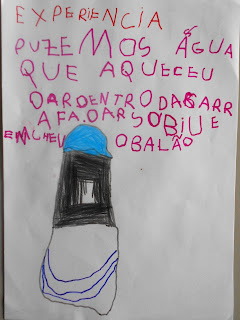 EXPERIENCIA
PUZEMOS ÁGUA
QUE AQUECEU
OARDENTRODAGARR
AFA.OARSOBIUE
ENCHEU OBALÃO